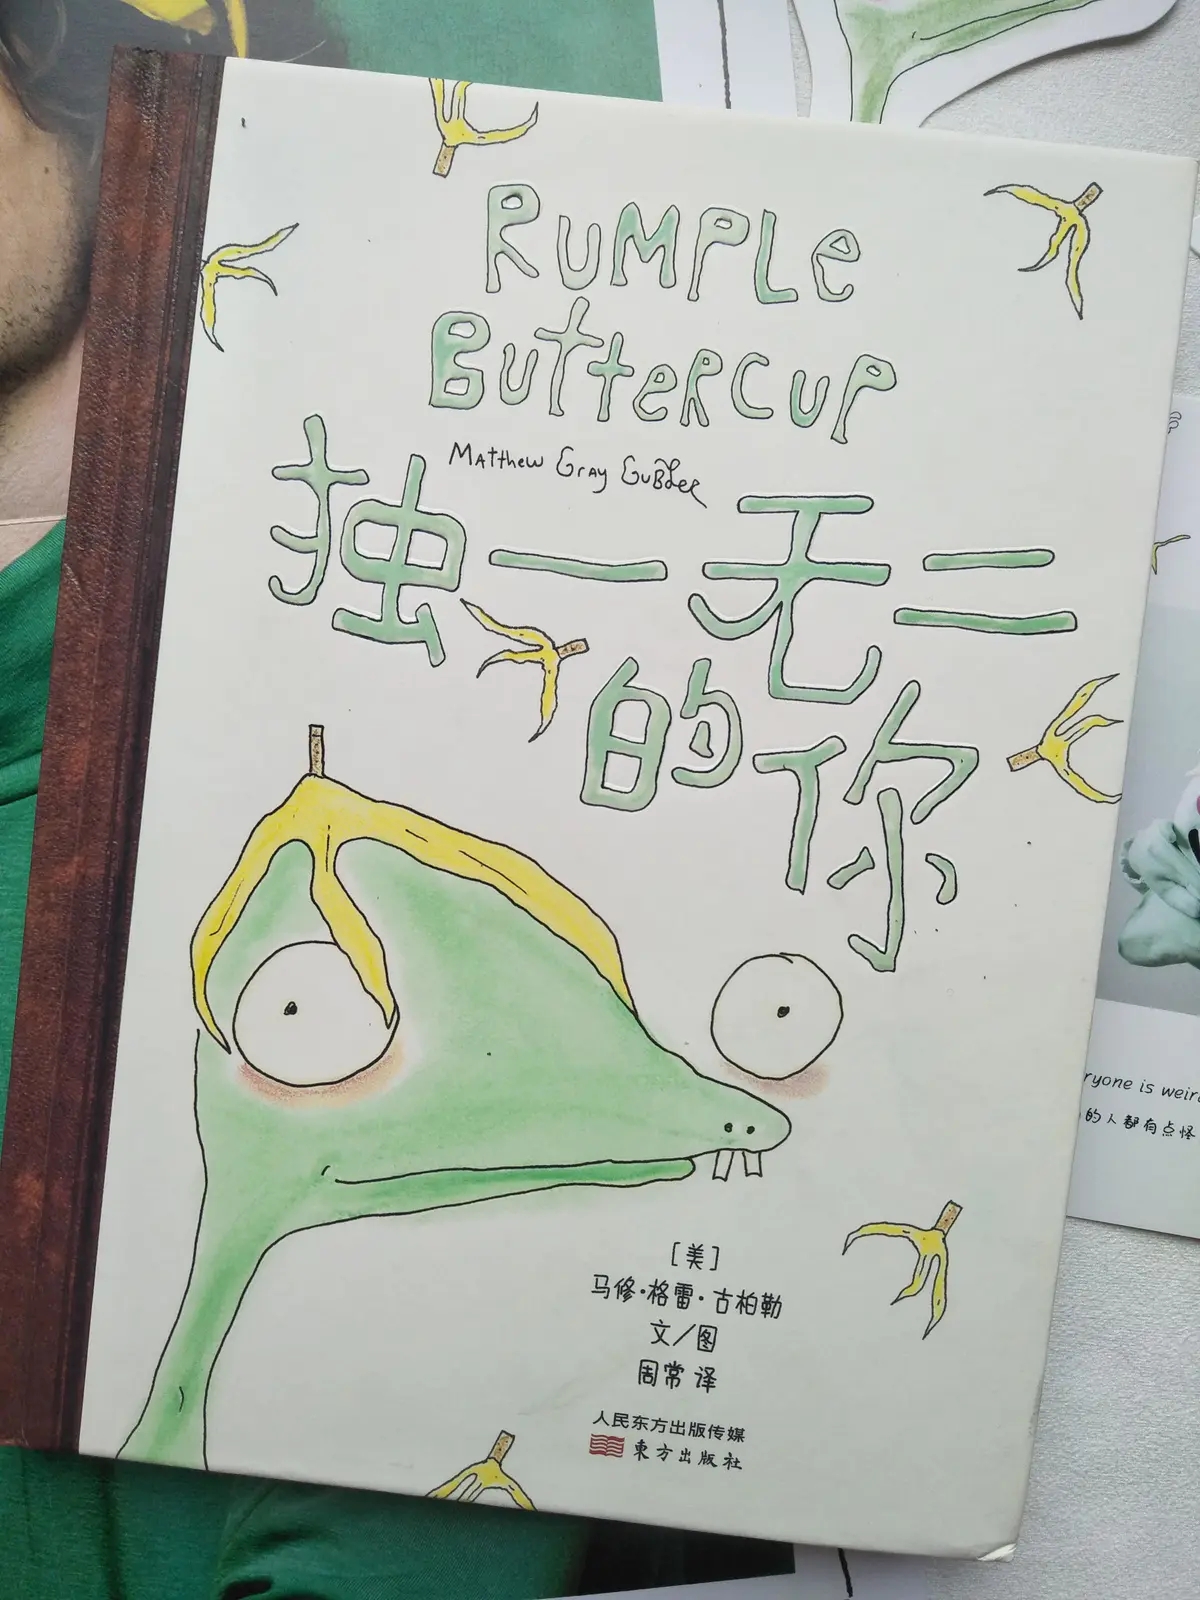 RUMPLE
BUTTERCUP
MATTHEW GRAY GUBLER
独一无二
的你
[美]
马修·格雷·古柏勒
文/图
周常 译
人民东方出版传媒
東方出版社
ryone is weir
的人都有点怪